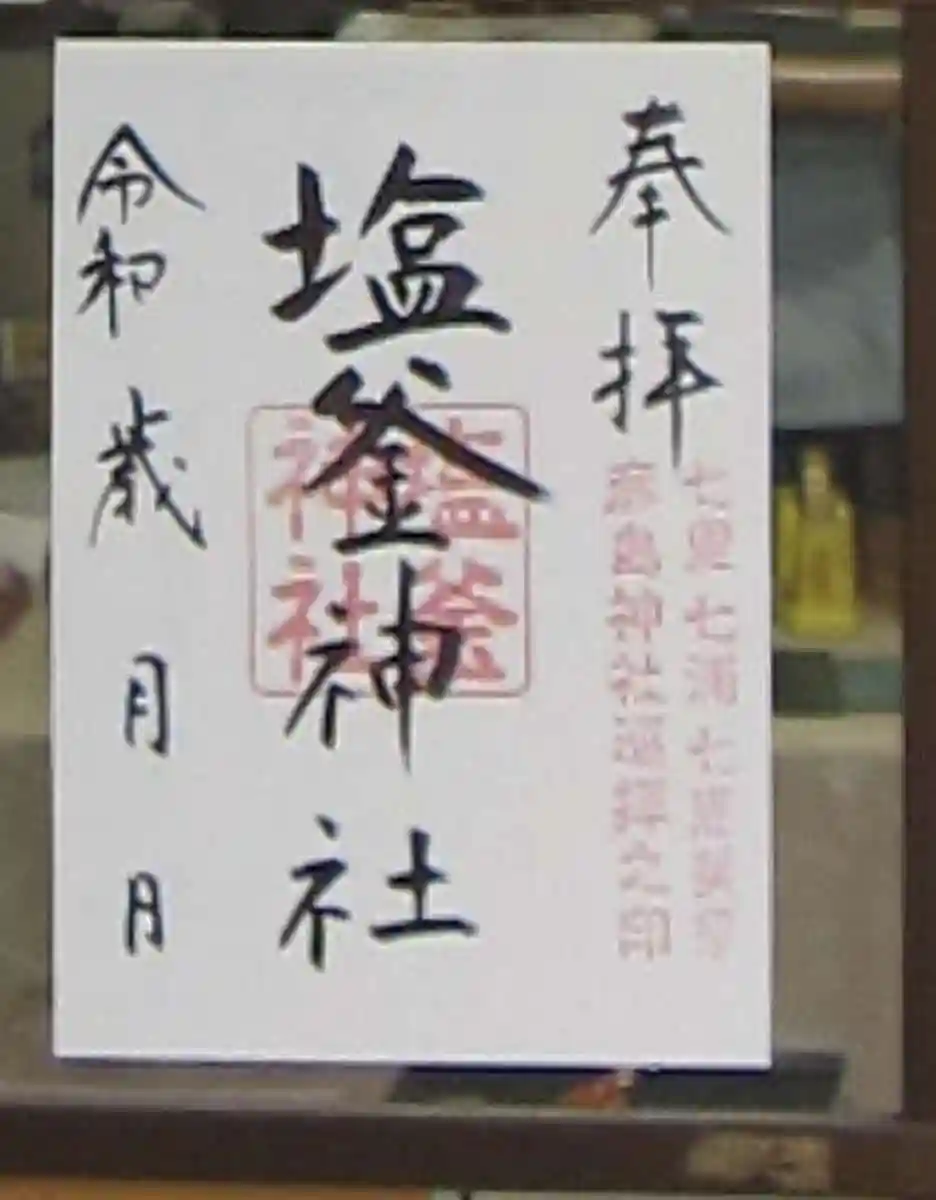 奉拝
七里七浦七
島神社巡拝之印
塩釜神社
塩釜
神社
令和 歳 月 月